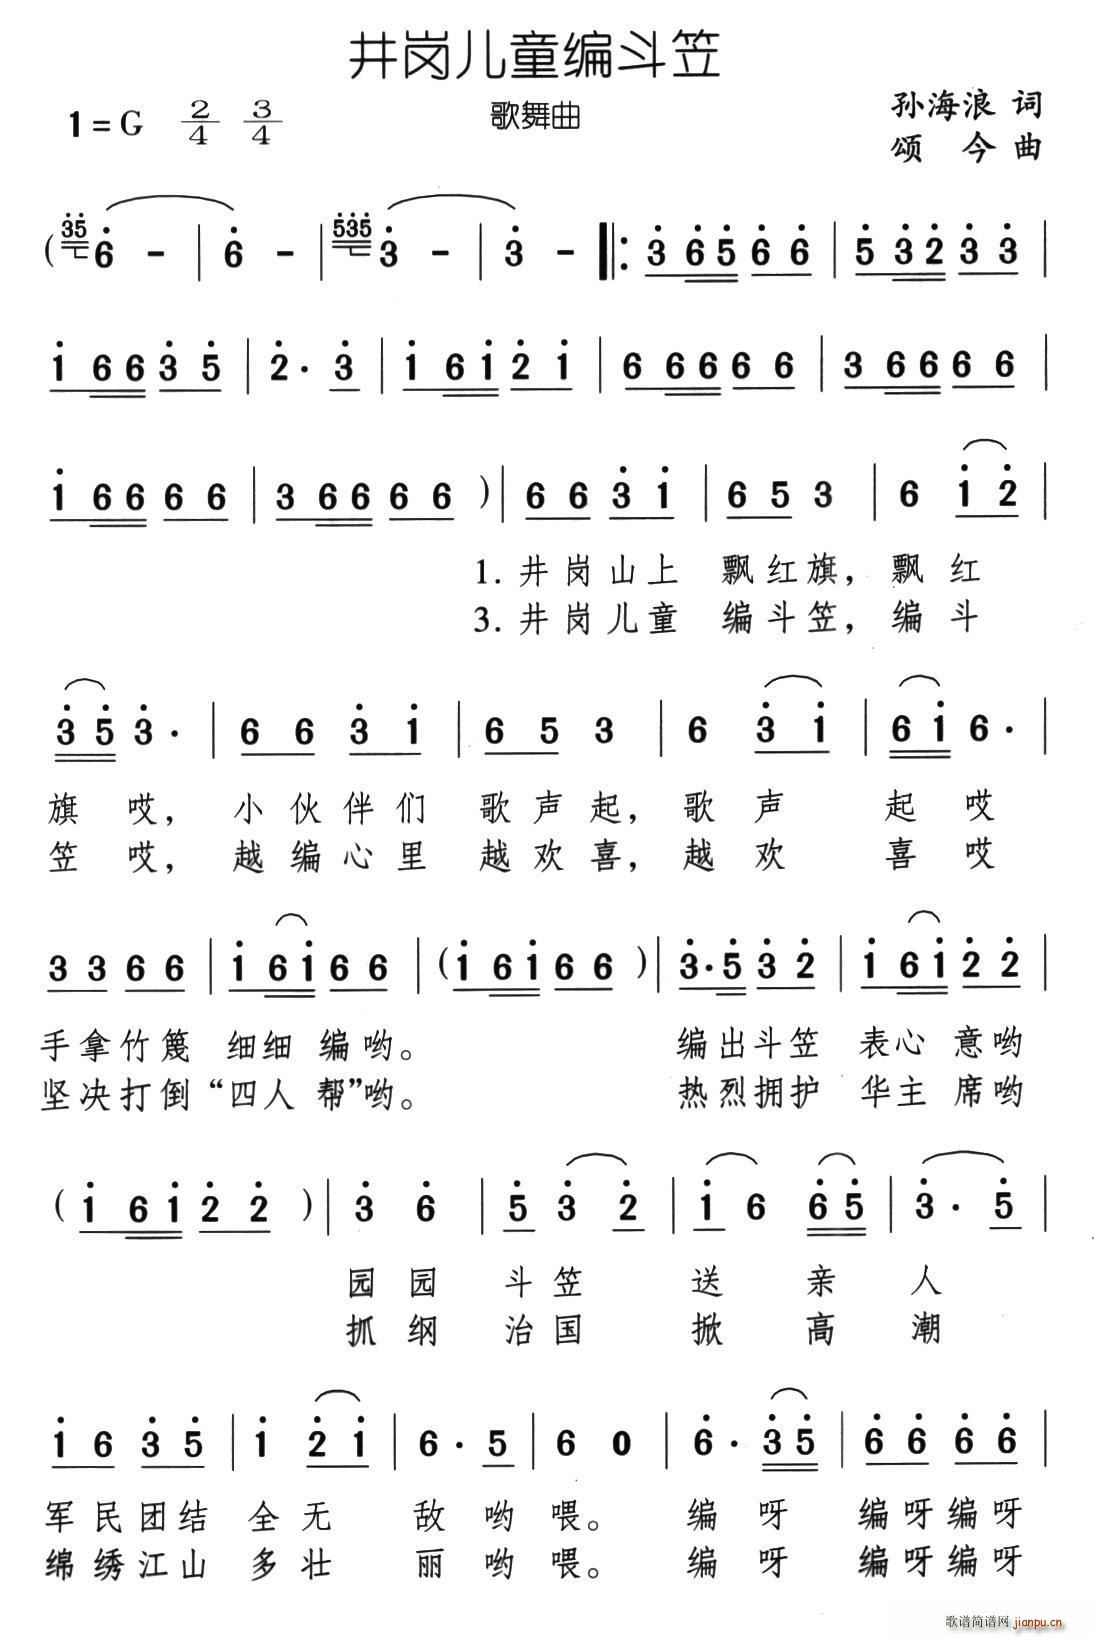 井岗儿童编斗笠
歌舞曲
1=G 2/4 3/4
孙海浪 词
颂 今 曲
( 35 6 - | 6 - | 535 3 - | 3 - |: 3 6 5 6 6 | 5 3 2 3 3 |
1 6 6 3 5 | 2 · 3 | 1 6 1 2 1 | 6 6 6 6 6 | 3 6 6 6 6 |
1 6 6 6 6 | 3 6 6 6 6 ) | 6 6 3 1 | 6 5 3 | 6 1 2 |
1. 井岗山上 飘红旗，飘红
3. 井岗儿童 编斗笠，编斗
3 5 3 · | 6 6 3 1 | 6 5 3 | 6 3 1 | 6 1 6 · |
旗 哎，小伙伴们 歌声起，歌声 起 哎
笠 哎，越编心里 越欢喜，越欢 喜 哎
3 3 6 6 | 1 6 1 6 6 | ( 1 6 1 6 6 ) | 3 · 5 3 2 | 1 6 1 2 2 |
手拿竹篾 细细 编哟。 编出斗笠 表心 意哟
坚决打倒“四人 帮”哟。 热烈拥护 华主 席哟
( 1 6 1 2 2 ) | 3 6 | 5 3 2 | 1 6 6 5 | 3 · 5 |
园园 斗笠 送 亲 人
抓纲 治国 掀 高 潮
1 6 3 5 | 1 2 1 | 6 · 5 | 6 0 | 6 · 3 5 | 6 6 6 6 |
军民团结 全无 敌 哟 喂。 编 呀 编呀编呀
绵绣江山 多壮 丽 哟 喂。 编 呀 编呀编呀
歌谱简谱网 jianpu.cn